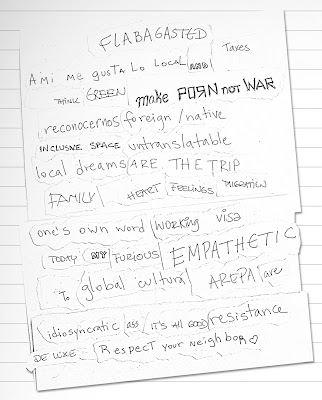 FLABAGASTED
A mi me gusta lo local Taxes
THINK GREEN make PORN not WAR
reconocernos foreign / native
INCLUSIVE SPACE untranslatable
local dreams ARE THE TRIP
FAMILY HEART FEELINGS MIGRATION
one's own word WORKING visa
TODAY FURIOUS EMPATHETIC
To global cultural AREPA are
idiosyncratic ass IT'S All GOOD resistance
DE LUXE RESPECT your neighbor